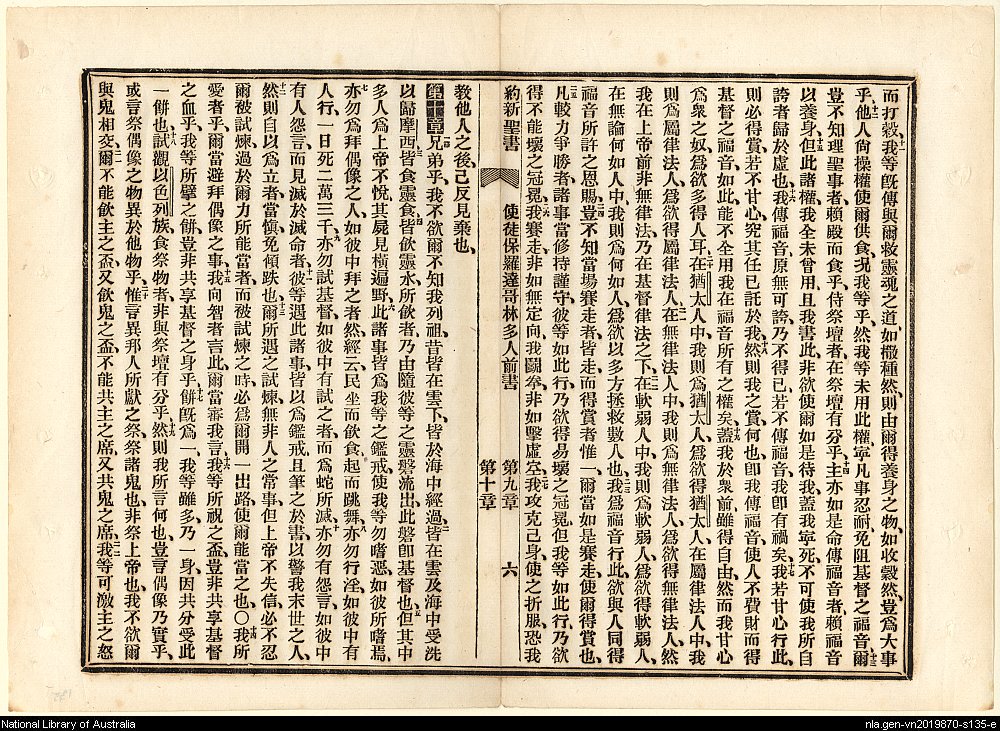 而打穀、十一我等既傳與爾救靈魂之道、如撒種然、則由爾得養身之物、如收穀然、豈爲大事
乎、十二他人尙操權使爾供食、况我等乎、然我等未用此權、寧凡事忍耐、免阻基督之福音、爾十三
豈不知理聖事者、賴殿而食乎、侍祭壇者、在祭壇有分乎、十四主亦如是命傳福音者、賴福音
以養身、十五但此諸權、我全未曾用、且我書此、非欲使爾如是待我、蓋我寧死、不可使我所自
誇者歸於虛也、十六我傳福音、原無可誇、乃不得已、若不傳福音、我卽有禍矣、十七我若甘心行此、
則必得賞、若不甘心、究其任已託於我、十八然則我之賞何也、卽我傳福音、使人不費財而得
基督之福音、如此能不全用我在福音所有之權矣、十九蓋我於衆前雖得自由、然而我甘心
爲衆之奴、爲欲多得人耳、二十在猶太人中、我則爲猶太人、爲欲得猶太人、在屬律法人中、我
則爲屬律法人、爲欲得屬律法人、二一在無律法人中、我則爲無律法人、爲欲得無律法人、然
我在上帝前、非無律法、乃在基督律法之下、二二在軟弱人中、我則爲軟弱人、爲欲得軟弱人、
在無論何如人中、我則爲何如人、爲欲以多方拯救數人也、二三我爲福音行此、欲與人同得
福音所許之恩賜、二四豈不知當塲賽走者皆走、而得賞者惟一、爾當如是賽走、使爾得賞也、
二五凡較力爭勝者、諸事當修持謹守、彼等如此行、乃欲得易壞之冠冕、但我等如此行、乃欲
得不能壞之冠冕、二六我賽走、非如無定向、我鬭拳、非如擊虛空、二七我攻克己身、使之折服、恐我
約新聖書 使徒保羅達哥林多人前書 第九章 第十章 六
敎他人之後、己反見棄也、
第十章 一兄弟乎、我不欲爾不知我列祖、昔皆在雲下、皆於海中經過、二皆在雲及海中受洗
以歸摩西、三皆食靈食、四皆飲靈水、所飲者、乃由隨彼等之靈磐流出、此磐卽基督也、五但其中
多人、爲上帝不悅、其屍見橫遍野、六此諸事皆爲我等之鑑戒、使我等勿嗜惡、如彼所嗜焉、
七亦勿爲拜偶像之人、如彼中拜之者然、經云、民坐而飲食、起而跳舞、八亦勿行淫、如彼中有
人行、一日死二萬三千、九亦勿試基督、如彼中有試之者、而爲蛇所滅、十亦勿有怨言、如彼中
有人怨言、而見滅於滅命者、十一彼等遇此諸事、皆以爲鑑戒、且筆之於書、以警我末世之人、
十二然則自以爲立者、當愼免傾跌也、十三爾所遇之試煉、無非人之常事、但上帝不失信、必不忍
爾被試煉過於爾力所能當者、而被試煉之時、必爲爾開一出路、使爾能當之也、〇十四我所
愛者乎、爾當避拜偶像之事、十五我向智者言此、爾當審我言、十六我等所祝之盃、豈非共享基督
之血乎、我等所擘之餅、豈非共享基督之身乎、十七餅旣爲一、我等雖多、乃一身、因共分受此
一餅也、十八試觀以色列族、食祭物者、非與祭壇有分乎、十九然則我所言何也、豈言偶像乃實乎、
或言祭偶像之物異於他物乎、二十惟言異邦人所獻之祭、祭諸鬼也、非祭上帝也、我不欲爾
與鬼相交、二一爾不能飲主之盃、又飲鬼之盃、不能共主之席、又共鬼之席、二二我等可激主之怒
National Library of Australia
nla.gen-vn2019870-s135-e